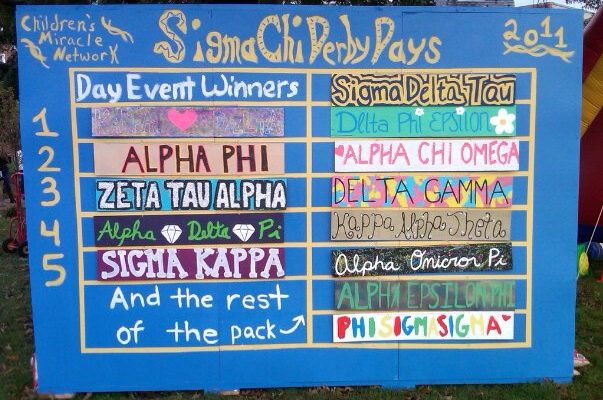 Children's
Miracle
Network
Sigma Chi Derby Days
2011
Day Event Winners
1
2 ALPHA PHI
3 ZETA TAU ALPHA
4 Alpha Delta Pi
5 SIGMA KAPPA
And the rest
of the pack
Sigma Delta Tau
Delta Phi EPSILON
ALPHA CHI OMEGA
DELTA GAMMA
Kappa Alpha Theta
Alpha Omicron Pi
ALPHA EPSILON PHI
PHI SIGMA SIGMA